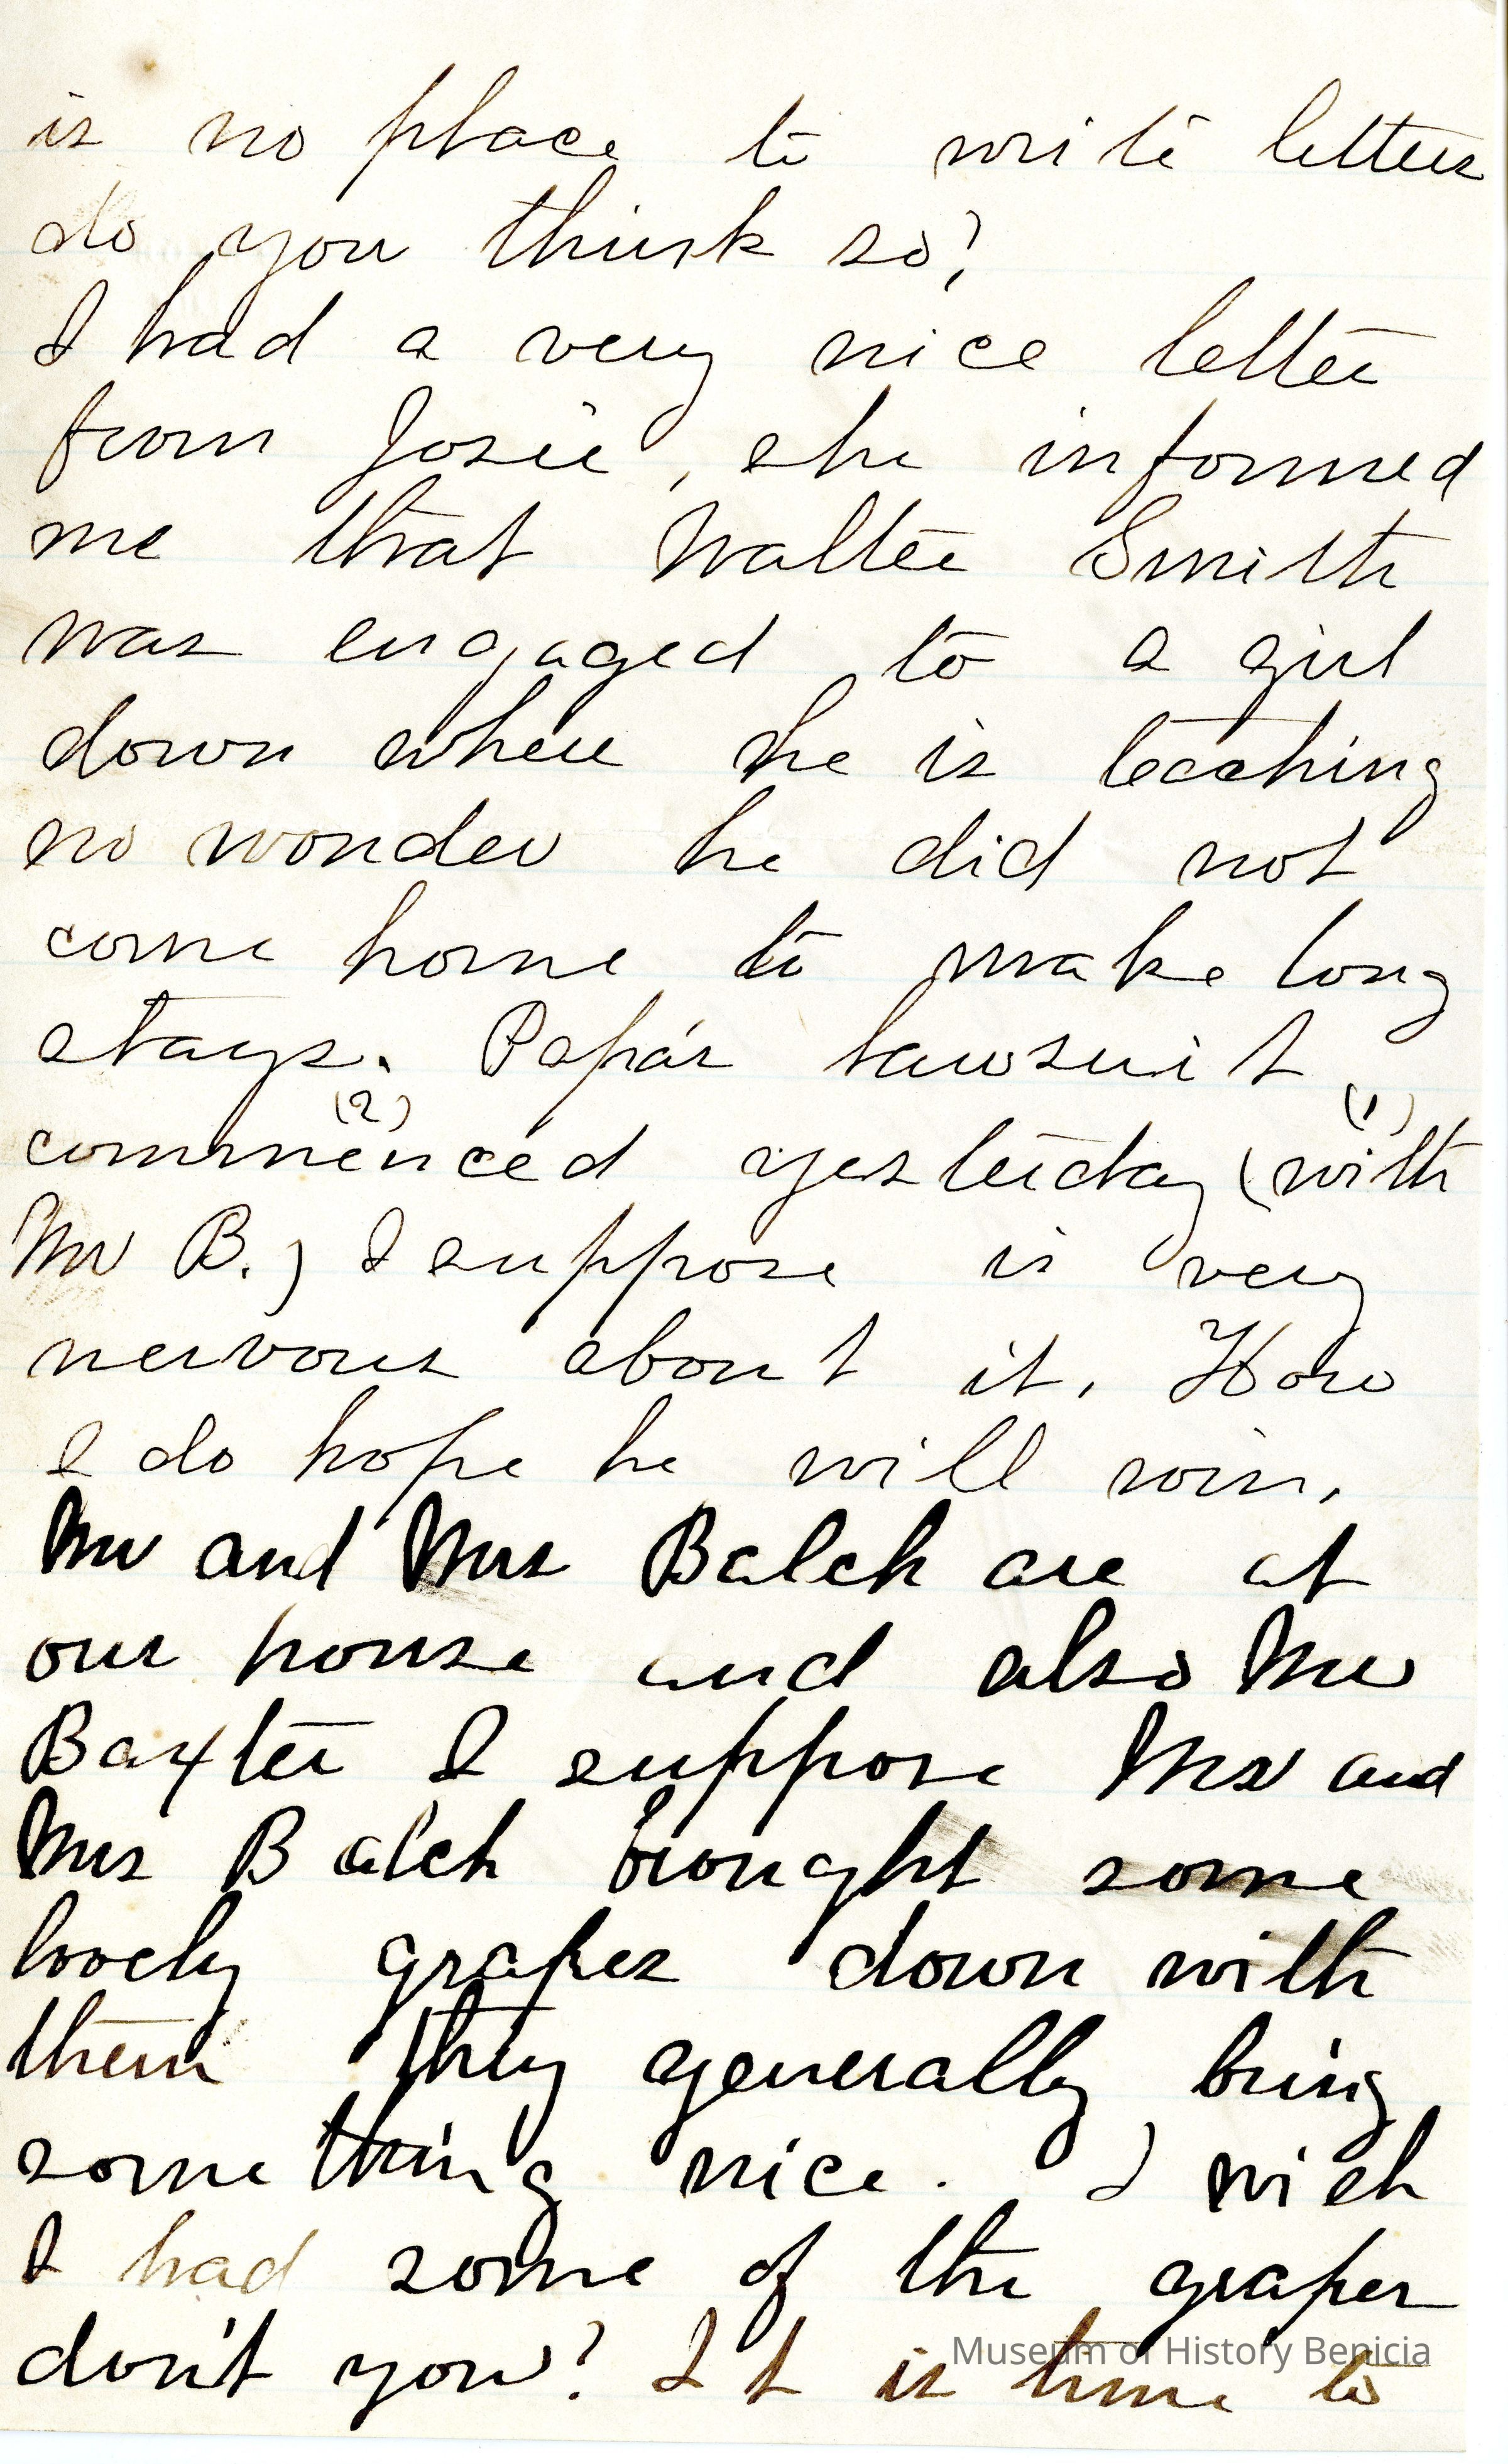 is no place to write letters
do you think so?
I had a very nice letter
from Josie, she informed
me that Walter Smith
was engaged to a girl
down where he is teaching
no wonder he did not
come home to make long
stays. Papá's lawsuit
(2) (1)
commenced yesterday (with
Mr B.) I suppose is very
nervous about it. How
I do hope he will win.
Mr and Mrs Balch are at
our house and also Mr
Baxter I suppose Mr and
Mrs Balch brought some
lovely grapes down with
them They generally bring
something nice. I wish
I had some of the grapes
don't you? It is time to
Museum of History Benicia